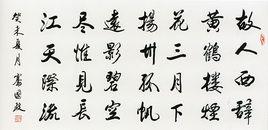 故人西辞
黄鶴楼煙
花三月下
揚州孤帆
遠影碧空
尽惟見長
江天際流
癸未夏月